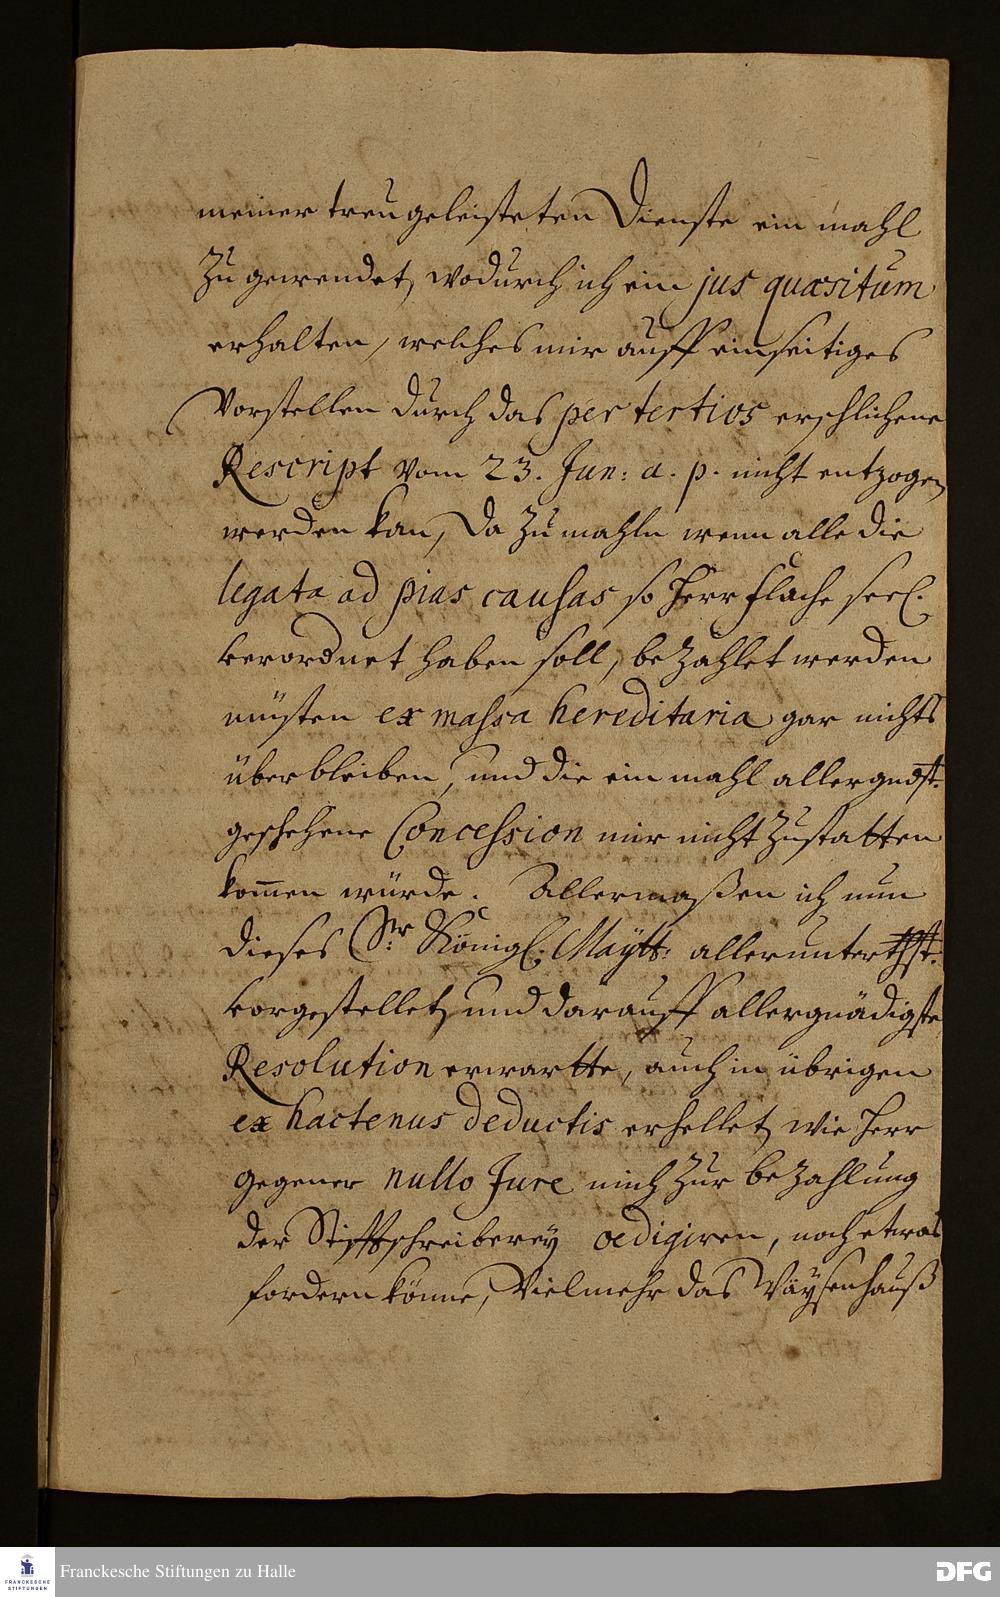 meiner treu geleisteten Dienste ein mahl
zu gewendet, wodurch ich ein jus quæsitum
erhalten, welches mir auff einseitiges
Vorstellen durch das per tertios erschlichene
Rescript vom 23. Jun: a. p. nicht entzogen
werden kan, Da zumahln wenn alle die
legata ad pias causas so Herr Flache seel.
verordnet haben soll, bezahlet werden
müsten ex massa hereditaria gar nichts
überbleiben, und die ein mahl allergndst.
geschehene Concession mir nicht zustatten
kom̄en würde. Allermaßen ich nun
dieses Sr. Königl. Maytt: allerunterthst.
vorgestellet, und darauff allergnädigste
Resolution erwartte, auch in übrigen
ex hactenus deductis erhellet, wie Herr
gegener nullo Jure mich zur bezahlung
der Stifftschreiberey, noch etwas
fordern könne, Vielmehr das Wäysenhauß
Franckesche Stiftungen zu Halle
FRANCKESCHE
STIFTUNGEN
DFG